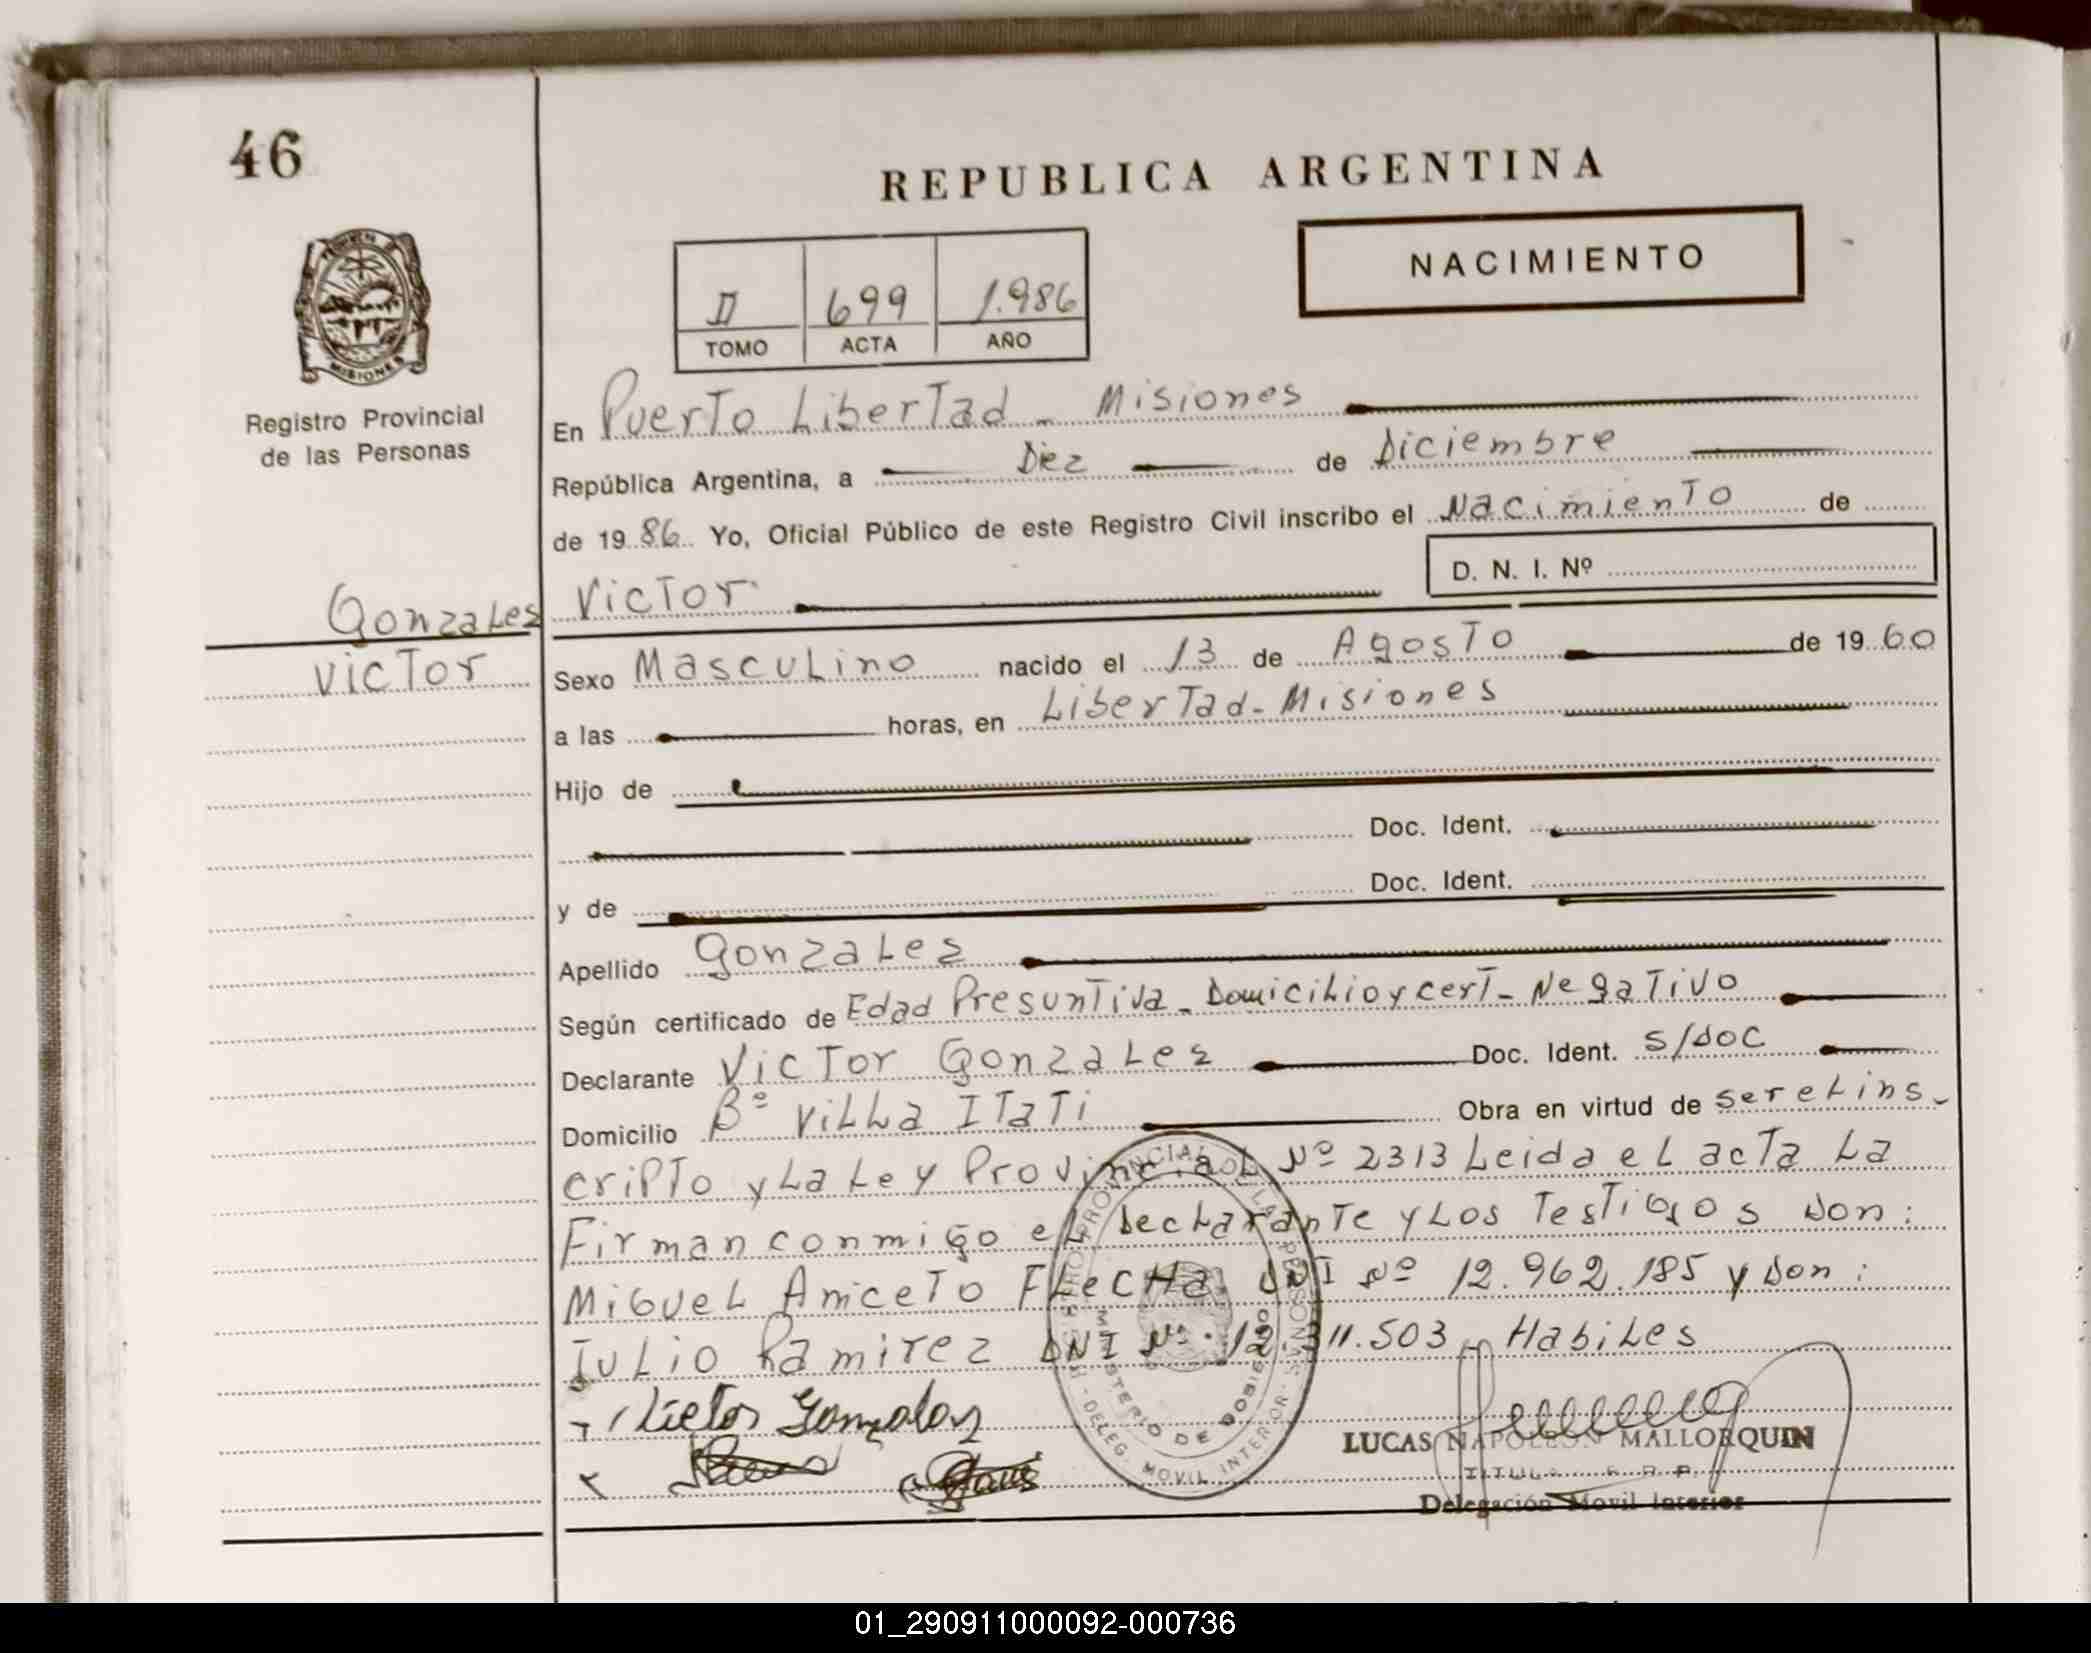 46
REPUBLICA ARGENTINA
NACIMIENTO
II 699 1.986
TOMO ACTA AÑO
MISIONES
Registro Provincial
de las Personas
En Puerto Libertad - Misiones
República Argentina, a Diez de Diciembre
de 1986 Yo, Oficial Público de este Registro Civil inscribo el Nacimiento de
D. N. I. Nº
Gonzales
Victor
Victor
Sexo Masculino nacido el 13 de Agosto de 1960
a las horas, en Libertad - Misiones
Hijo de
Doc. Ident.
y de Doc. Ident.
Apellido Gonzales
Según certificado de Edad Presuntiva - Domicilio y cert - Negativo
Declarante Victor Gonzales Doc. Ident. s/doc
Domicilio Bº Villa Itati Obra en virtud de ser el ins-
cripto y la Ley Provincial Nº 2313 Leida el acta La
Firman conmigo el Declarante y Los Testigos Don:
Miguel Aniceto FLecHa DNI Nº 12.962.185 y Don:
Julio Ramirez DNI Nº 12.311.503 - Habiles
Victor Gonzales
REGISTRO PROVINCIAL DE LAS PERSONAS - DELEG. MOVIL INTERIOR
MINISTERIO DE GOBIERNO
LUCAS NAPOLEON MALLORQUIN
TITULAR R. P.
Delegación Movil Interior
01_290911000092-000736